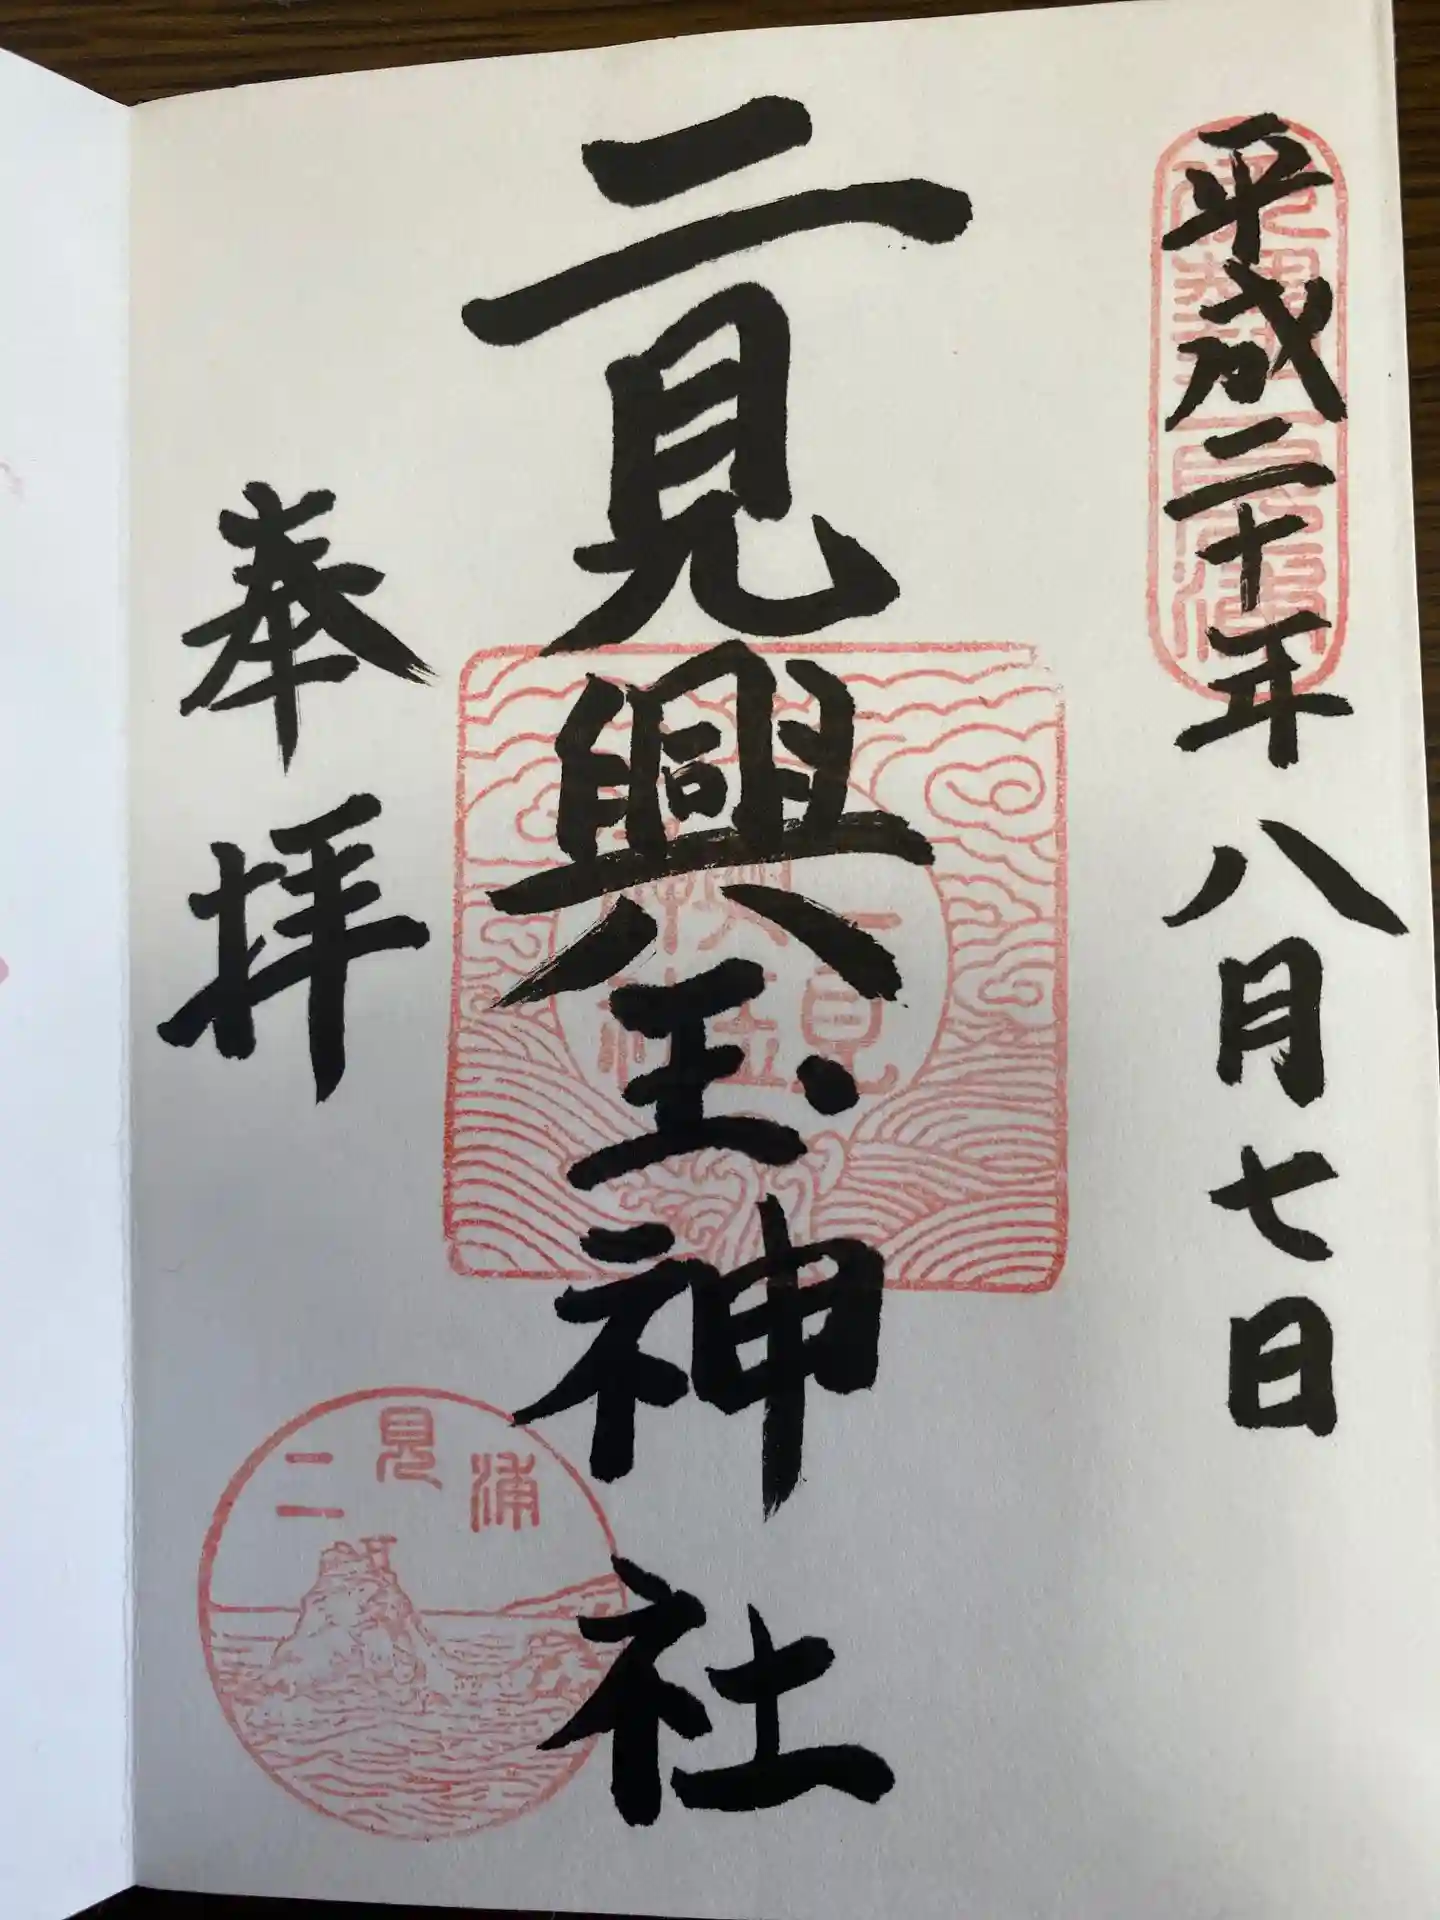 平成二十年八月七日
二見興玉神社
奉拝
二見
興玉
神社
二見浦